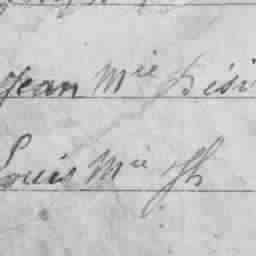 Jean Mie Dési
Louis Mie Jh